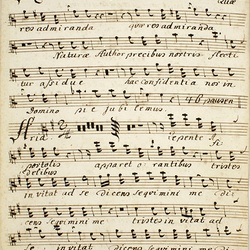 res admiranda quae res admiranda
Naturae Author precibus nostris flecti
tur assidue hac confidentia nor in
Domino pie jubilemus 4 ll pausen
Aria repente
Si
portolis apparet orantibus tristes
delibus
in vitat ad se dicens sequimini me di
cens sequimini me tristes in vitat ad
se in vitat dicens sequimini me